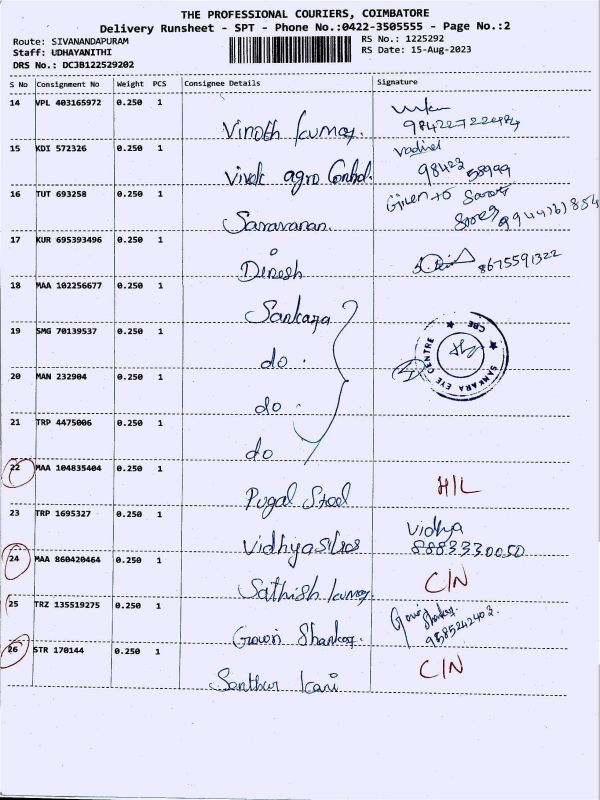 THE PROFESSIONAL COURIERS, COIMBATORE
Delivery Runsheet - SPT - Phone No.:0422-3505555 - Page No.:2
Route: SIVANANDAPURAM
RS No.: 1225292
Staff: UDHAYANITHI
RS Date: 15-Aug-2023
DRS No.: DCJB122529202
S No Consignment No Weight PCS Consignee Details Signature
14 VPL 403165972 0.250 1
Vinoth Kumar.
15 KDI 572326 0.250 1
Vadivel
98423 58999
Vivek agro Control.
16 TUT 693258 0.250 1
Given to
Saravanan.
17 KUR 695393496 0.250 1
8675591322
Dinesh
18 MAA 102256677 0.250 1
Sankara
19 SMG 70139537 0.250 1
do.
SANKARA EYE CENTRE
CBE
20 MAN 232904 0.250 1
do.
21 TRP 4475006 0.250 1
do
22 MAA 104835404 0.250 1
H/L
Pugal Steel
23 TRP 1695327 0.250 1
Vidhya
8883330050
Vidhya silks
24 MAA 860420464 0.250 1
C/N
Sathish Kumar
25 TRZ 135519275 0.250 1
Gowri
Shankar.
9585242402.
Gowri Shankar.
26 STR 170144 0.250 1
C/N